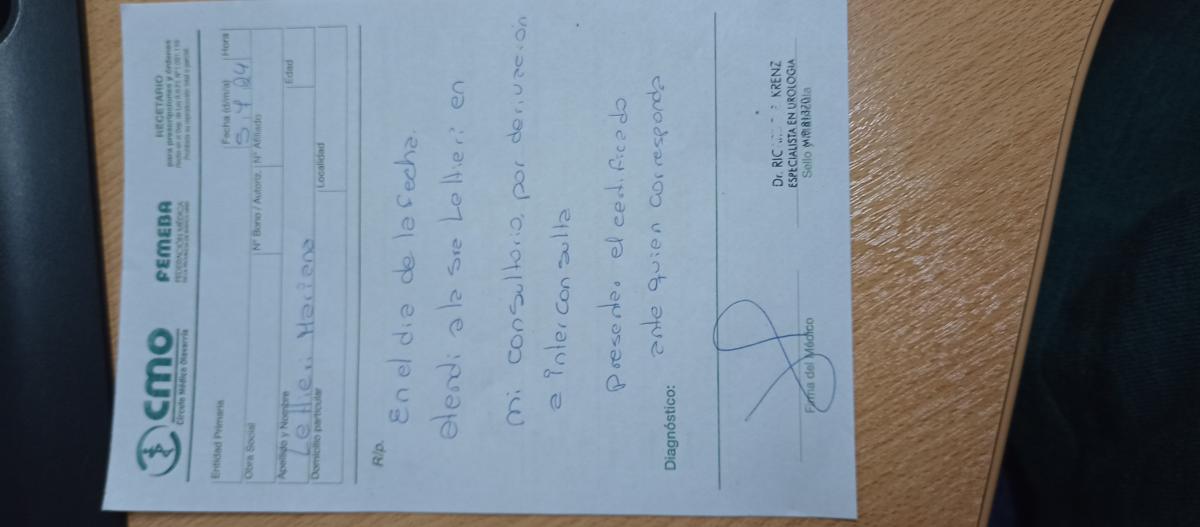 CMO
Círculo Médico Olavarría
FEMEBA
FEDERACIÓN MÉDICA
RECETARIO
para prescripciones y órdenes
Entidad Primaria
Fecha (d/m/a)
Hora
3 4 24
Obra Social
Nº Bono / Autoriz.
Nº Afiliado
Apellido y Nombre
Edad
Lettieri Mariana
Domicilio particular
Localidad
R/p.
En el dia de la fecha.
atendi a la sra Lettieri en
mi consultorio, por derivacion
a interconsulta
presentar el certificado
ante quien corresponda
Diagnóstico:
Firma del Médico
Dr. RIC KRENZ
ESPECIALISTA EN UROLOGIA
Sello